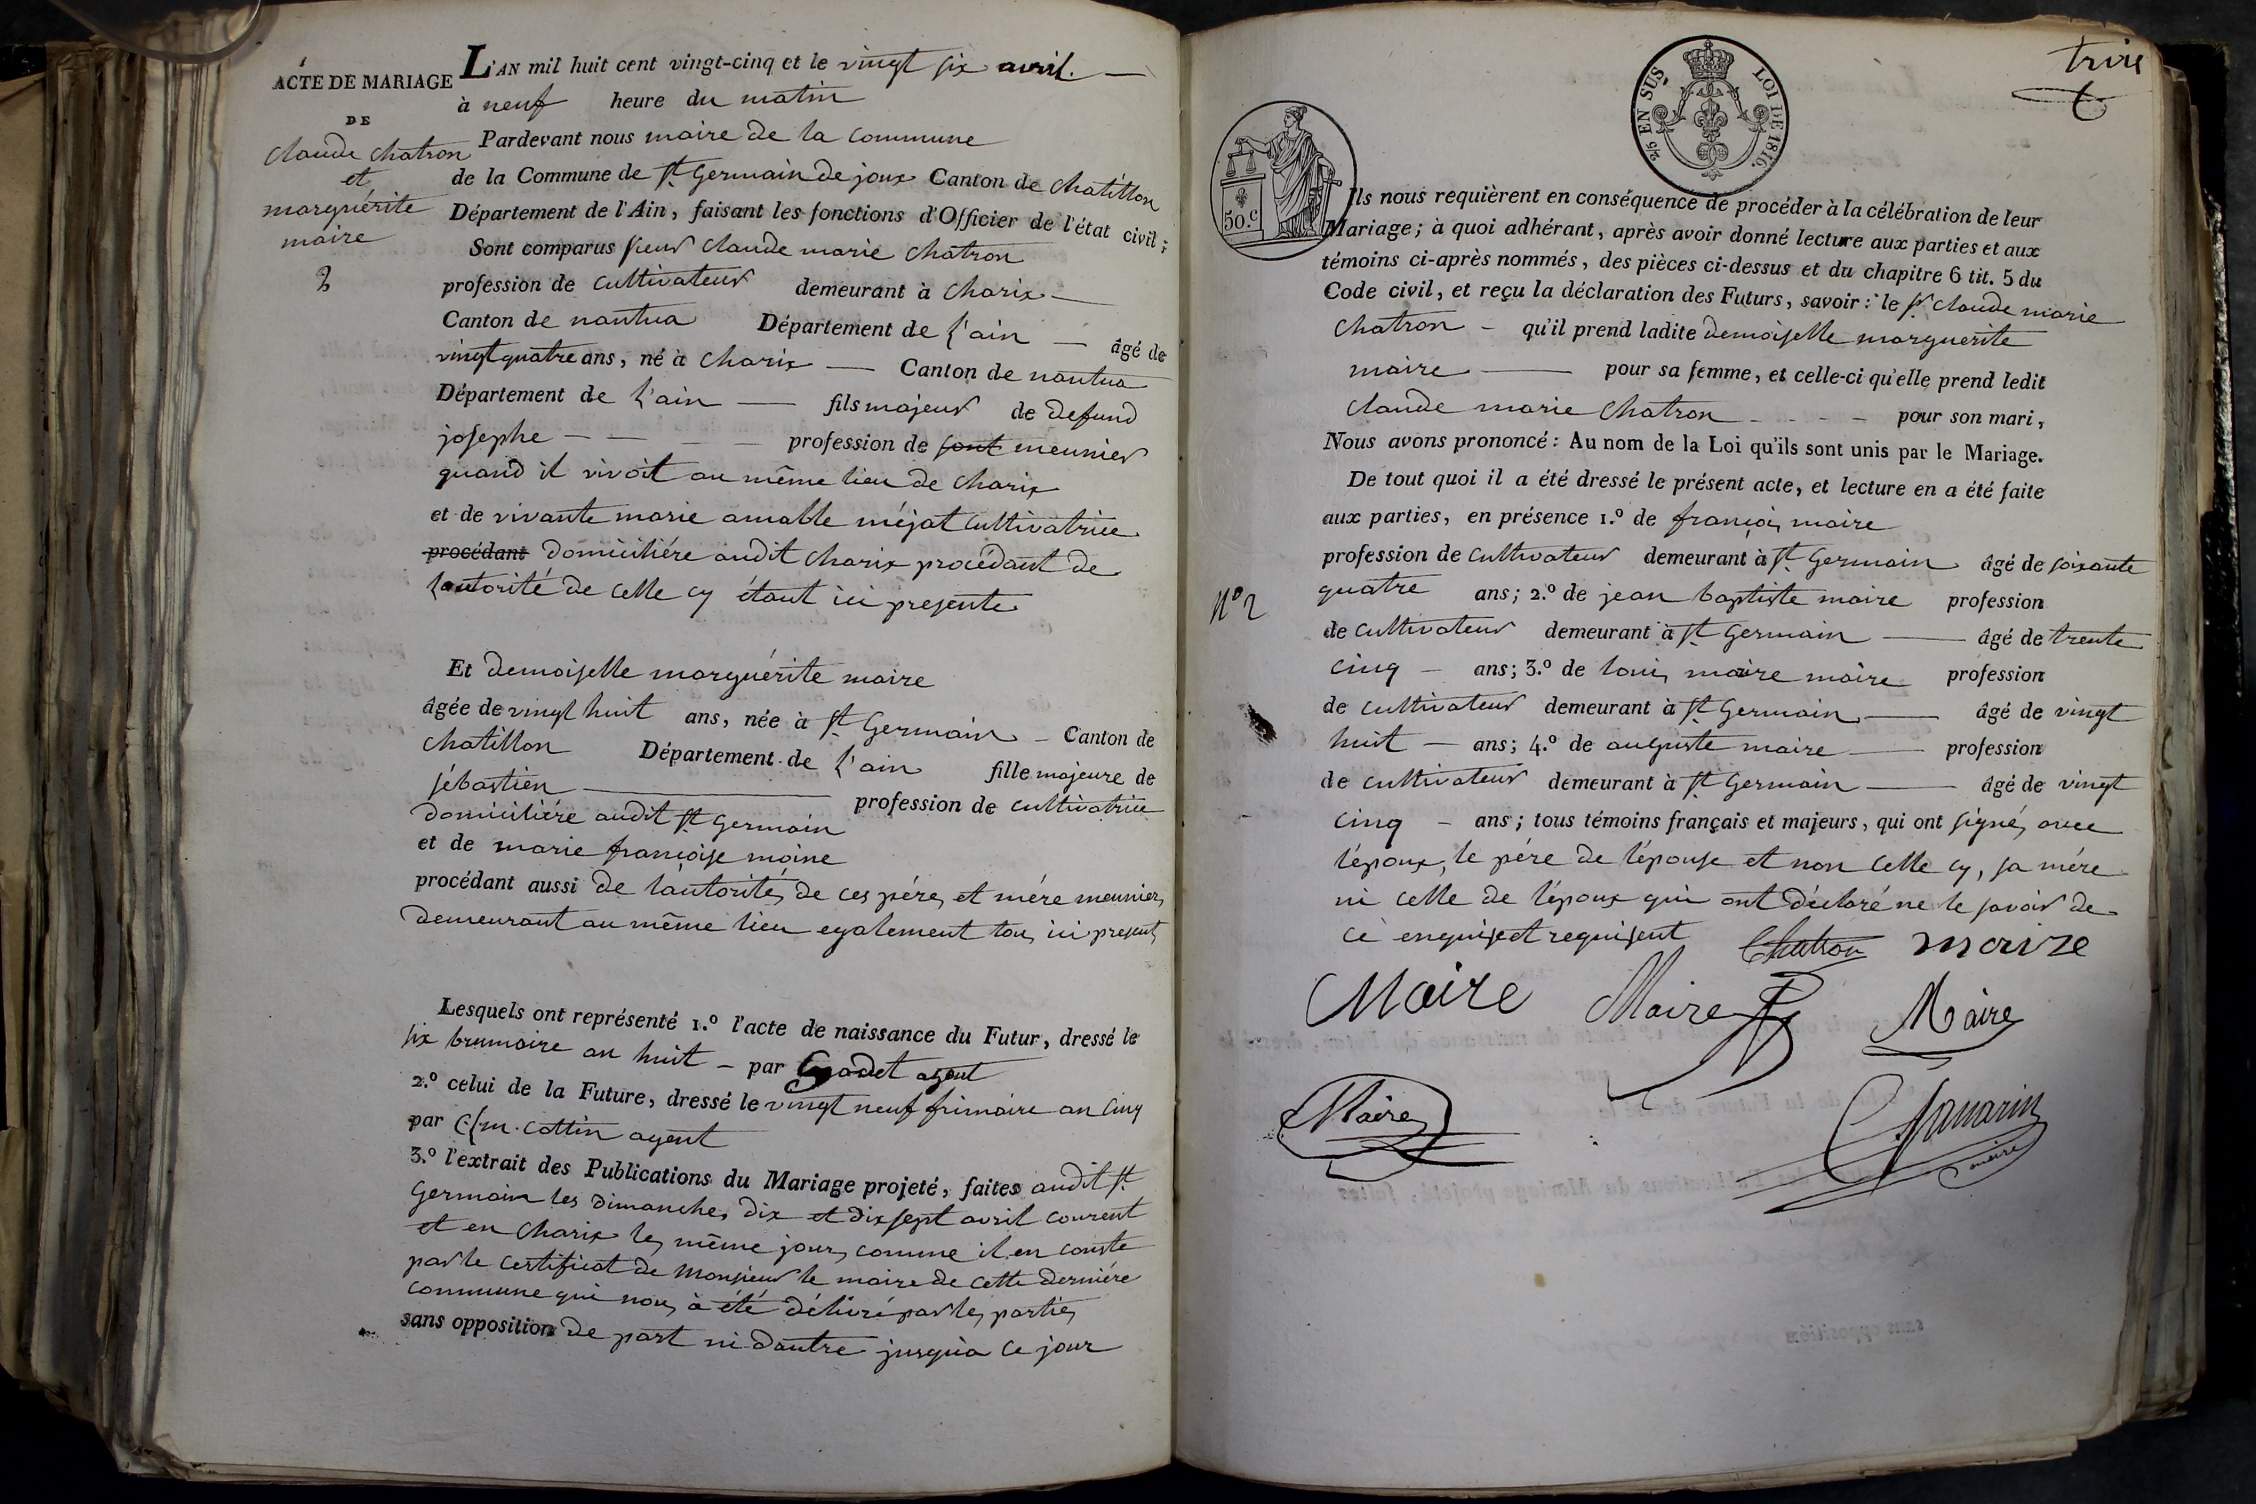 ACTE DE MARIAGE
DE
claude chatron
et
marguérite
maire
2
L'AN mil huit cent vingt-cinq et le vingt six avril.
à neuf heure du matin
Pardevant nous maire de la commune
de la Commune de St Germain de joux Canton de chatillon
Département de l'Ain, faisant les fonctions d'Officier de l'état civil;
Sont comparus sieur claude marie chatron
profession de cultivateur demeurant à charix
Canton de nantua Département de l'ain âgé de
vingt quatre ans, né à charix Canton de nantua
Département de l'ain fils majeur de defund
josephe profession de sont meunier
quand il vivoit au même lieu de charix
et de vivante marie amable méjat cultivatrice
procédant domiciliére audit charix procédant de
l'autorité de celle cy étant ici presente
Et demoiselle marguérite maire
âgée de vingt huit ans, née à St Germain Canton de
chatillon Département de l'ain fille majeure de
sébastien profession de cultivatrice
domiciliére audit St Germain
et de marie françoise moine
procédant aussi de l'autorités de ces pére et mére meuniers
demeurant au même lieu egalement tous ici presents
Lesquels ont représenté 1.º l'acte de naissance du Futur, dressé le
six brumaire an huit – par Godet agent
2.º celui de la Future, dressé le vingt neuf frimaire an cinq
par Cottin agent
3.º l'extrait des Publications du Mariage projeté, faites audit St
Germain les dimanches dix et dix sept avril courent
et en charix les même jours comme il en conste
par le certificat de Monsieur le maire de cette derniére
commune qui nous à été délivré par les parties
sans opposition de part ni dautre jusqu'a ce jour
trois
2/5 EN SUS
LOI DE 1816.
50.c
Ils nous requièrent en conséquence de procéder à la célébration de leur
Mariage; à quoi adhérant, après avoir donné lecture aux parties et aux
témoins ci-après nommés, des pièces ci-dessus et du chapitre 6 tit. 5 du
Code civil, et reçu la déclaration des Futurs, savoir: le sr claude marie
chatron – qu'il prend ladite demoiselle marguerite
maire pour sa femme, et celle-ci qu'elle prend ledit
claude marie chatron pour son mari,
Nous avons prononcé: Au nom de la Loi qu'ils sont unis par le Mariage.
De tout quoi il a été dressé le présent acte, et lecture en a été faite
aux parties, en présence 1.º de françois maire
profession de cultivateur demeurant à St Germain âgé de soixante
quatre ans; 2.º de jean baptiste maire profession
Nº 2
de cultivateur demeurant à St Germain âgé de trente
cinq – ans; 3.º de louis maire maire profession
de cultivateur demeurant à St Germain âgé de vingt
huit – ans; 4.º de auguste maire profession
de cultivateur demeurant à St Germain âgé de vingt
cinq – ans; tous témoins français et majeurs, qui ont signés avec
l'époux, le pére de l'épouse et non celle cy, sa mére
ni celle de l'époux qui ont déclaré ne le savoir de
ce enquise et requisent Chatron maire
Maire Maire Maire
Maire
maire